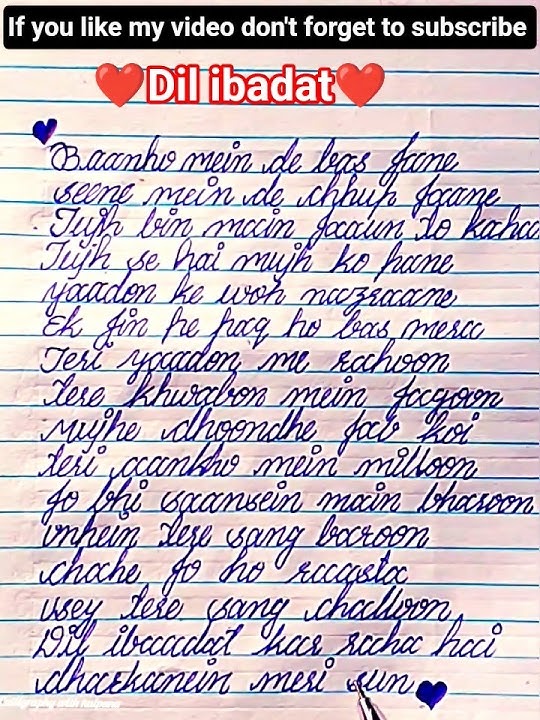 If you like my video don't forget to subscribe
Dil ibadat
Baanho mein de bas jane
seene mein de chhup jaane
Tujh bin main jaaun to kaha
Tujh se hai mujh ko pane
yaadon ke woh nazraane
Ek jin pe haq ho bas mera
Teri yaadon me rahoon
tere khwabon mein jagoon
Mujhe dhoondhe jab koi
teri aankho mein milloon
jo bhi saansein main bharoon
unhein tere sang baroon
chahe jo ho raasta
usey tere sang challoon
Dil ibaadat kar raha hai
dharkanein meri sun